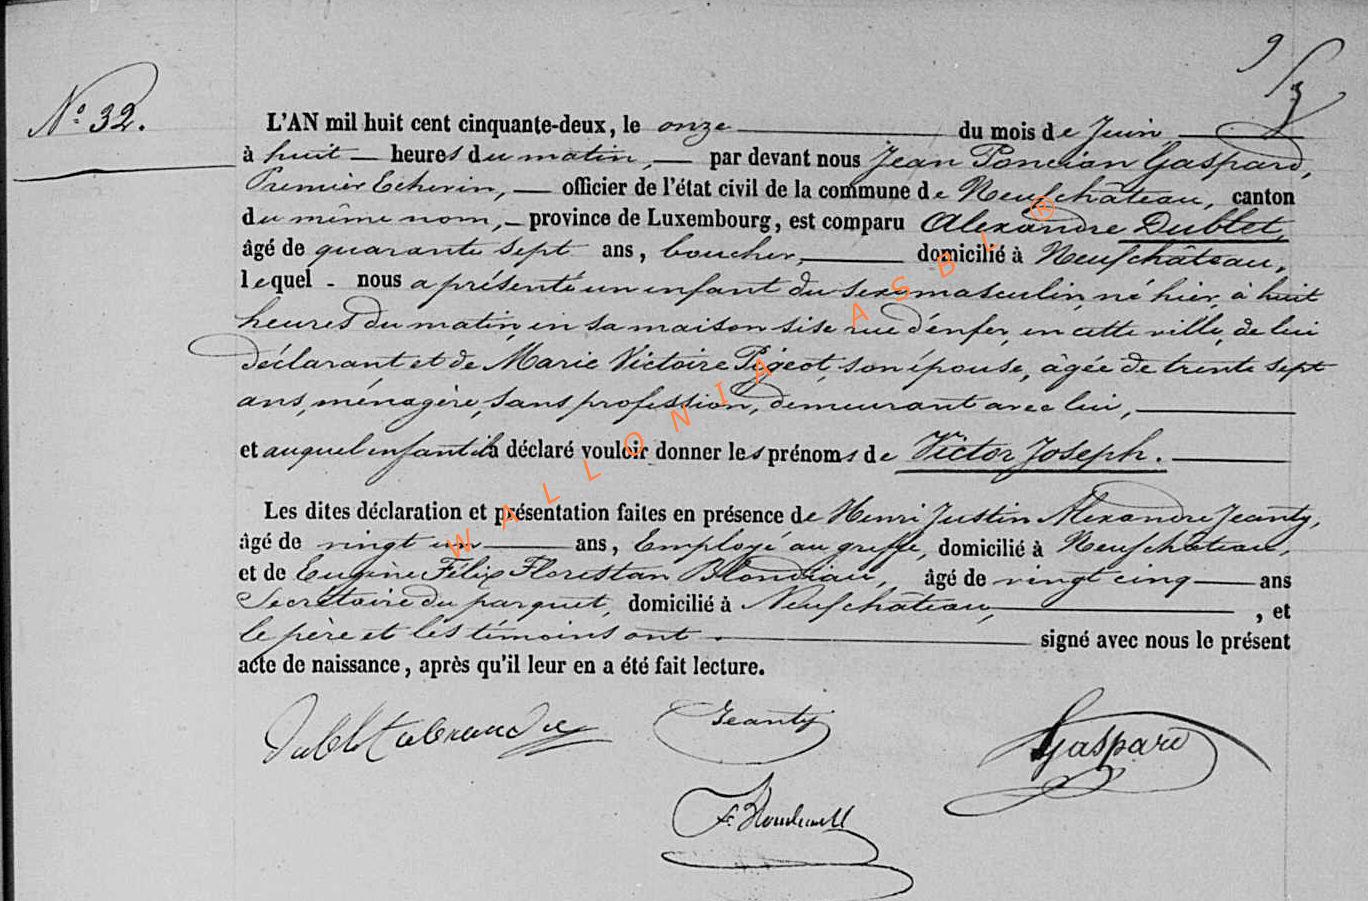 9/3
N° 32.
L'AN mil huit cent cinquante-deux, le onze du mois de Juin
à huit heures du matin, par devant nous Jean Poncian Gaspard,
Premier Echevin, officier de l'état civil de la commune de Neufchâteau, canton
du même nom, province de Luxembourg, est comparu Alexandre Dublet,
âgé de quarante sept ans, boucher, domicilié à Neufchâteau,
lequel nous a présenté un enfant du sexe masculin, né hier à huit
heures du matin, en sa maison sise rue d'enfer, en cette ville, de lui
déclarant et de Marie Victoire Pigeot, son épouse, âgée de trente sept
ans, ménagère, sans profession, demeurant avec lui,
et auquel enfant il a déclaré vouloir donner les prénoms de Victor Joseph.
Les dites déclaration et présentation faites en présence de Henri Justin Alexandre Jeanty,
âgé de vingt un ans, Employé au greffe, domicilié à Neufchâteau,
et de Eugène Félix Florestan Blondiau, âgé de vingt cinq ans
Secrétaire du parquet, domicilié à Neufchâteau, , et
le père et les témoins ont signé avec nous le présent
acte de naissance, après qu'il leur en a été fait lecture.
Jeanty
Gaspard
WALLONIA ASBL ®